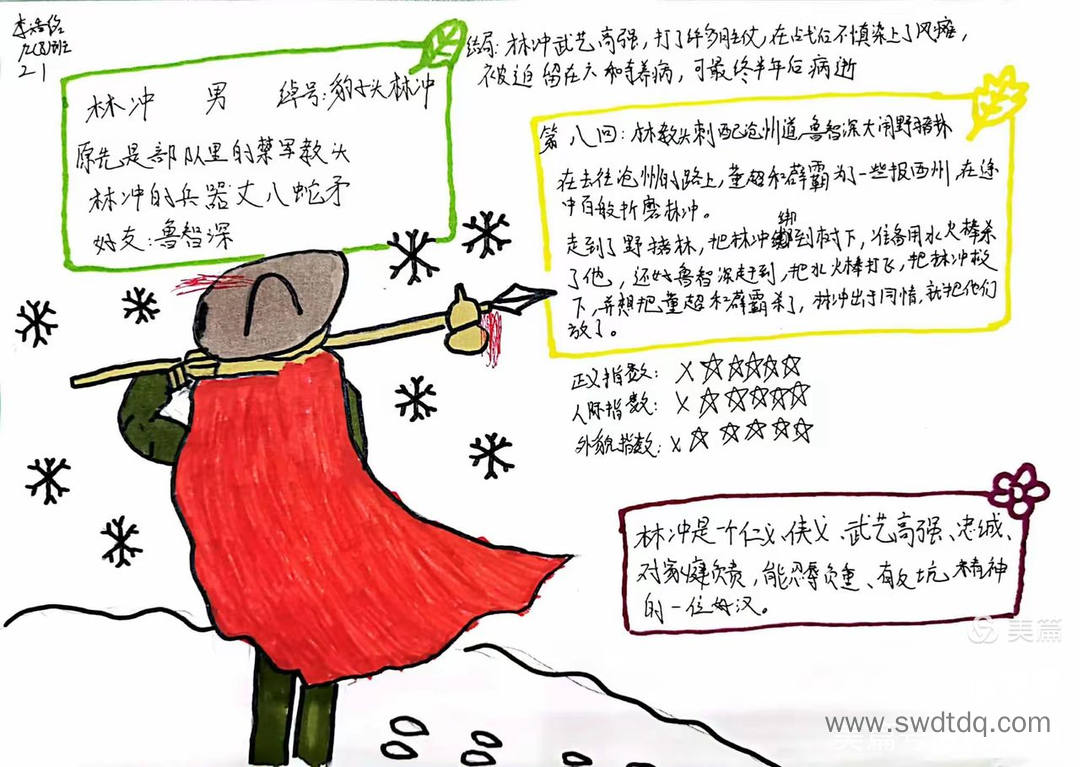 21
结局：林冲武艺高强，打了许多胜仗，在战后不慎染上了风瘫，
被迫留在六和寺养病，可最终半年后病逝
林冲 男 绰号：豹子头林冲
原先是部队里的禁军教头
林冲的兵器丈八蛇矛
好友：鲁智深
第八回：林教头刺配沧州道 鲁智深大闹野猪林
在去往沧州的路上，董超和薛霸为了一些报西州，在途
中百般折磨林冲。
走到了野猪林，把林冲绑到树下，准备用水火棒杀
了他，还好鲁智深赶到，把水火棒打飞，把林冲救
下，并想把董超和薛霸杀了，林冲出于同情，就把他们
放了。
正义指数：X☆☆☆☆☆
人际指数：X☆☆☆☆☆
外貌指数：X☆☆☆☆☆
林冲是一个仁义、侠义、武艺高强、忠诚、
对家庭负责，能忍辱负重、有反坑精神
的一位好汉。
美篇
www.swdtdq.com